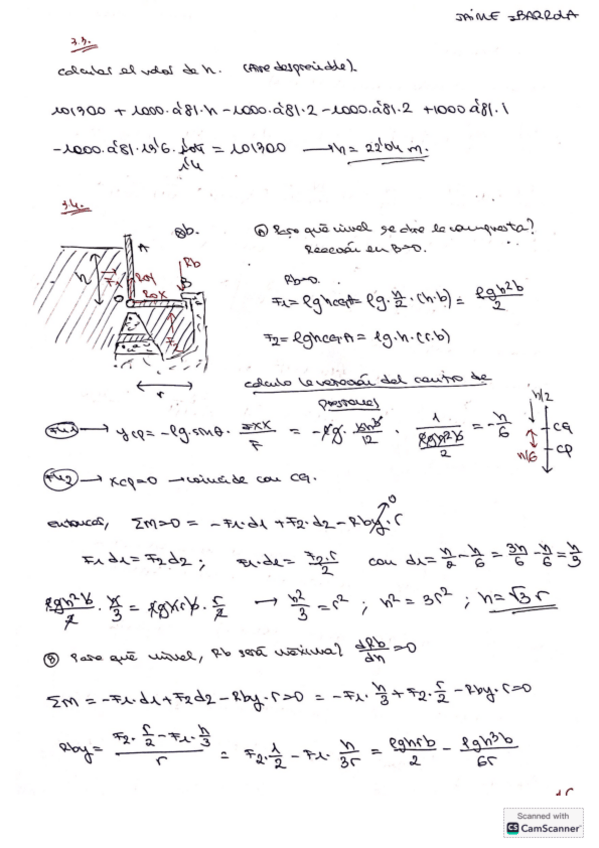 JAIME IBARROLA
3.3.
Calcular el valor de h. (Aire despreciable).
101300 + 1000·9'81·h - 1000·9'81·2 - 1000·9'81·2 + 1000·9'81·1
- 1000·9'81·13'6· = 101300 → h = 22'04 m.
3.4.
b.
A
Rb
B
h
F1
Roy
Rox
O
F2
r
(A) Para qué nivel se abre la compuerta?
Reacción en B=0.
Rb=0.
F1 = ρghCGA = ρg·h/2·(h·b) = ρgh²b/2
F2 = ρghCGA = ρg·h·(r·b)
Cálculo la variación del centro de
presiones
Fh1 → ycp = -ρg·senθ· Ixx/F = -ρg· bh³/12 · 1/(ρgh²b/2) = -h/6
h/2
CG
h/6
CP
Fh2 → xcp=0 → coincide con CG.
entonces, ΣM=0 = -F1·d1 + F2·d2 - Rby·r
0
F1d1 = F2d2 ; F1·d1 = F2·r/2 con d1 = h/2 - h/6 = 3h/6 - h/6 = h/3
ρgh²b/2 · h/3 = ρghrb · r/2 → h²/3 = r² ; h² = 3r² ; h = √3 r
(B) Para qué nivel, Rb será máxima? dRb/dh = 0
ΣM = -F1·d1 + F2d2 - Rby·r = 0 = -F1·h/3 + F2·r/2 - Rby·r = 0
Rby = (F2·r/2 - F1·h/3)/r = F2·1/2 - F1·h/3r = ρghrb/2 - ρgh³b/6r
Scanned with
CS CamScanner